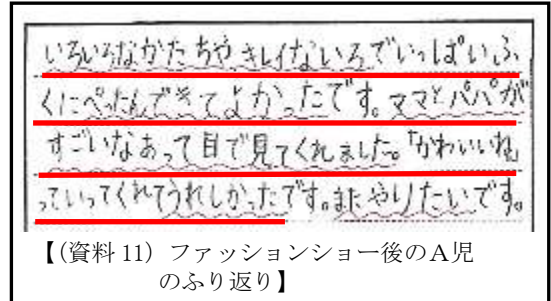 いろいろなかたちやキレイないろでいっぱい、ふ
くにぺったんできてよかったです。ママとパパが
すごいなあって目で見てくれました。「かわいいね」
っていってくれてうれしかったです。またやりたいです。
【(資料 11) ファッションショー後のA児
のふり返り】